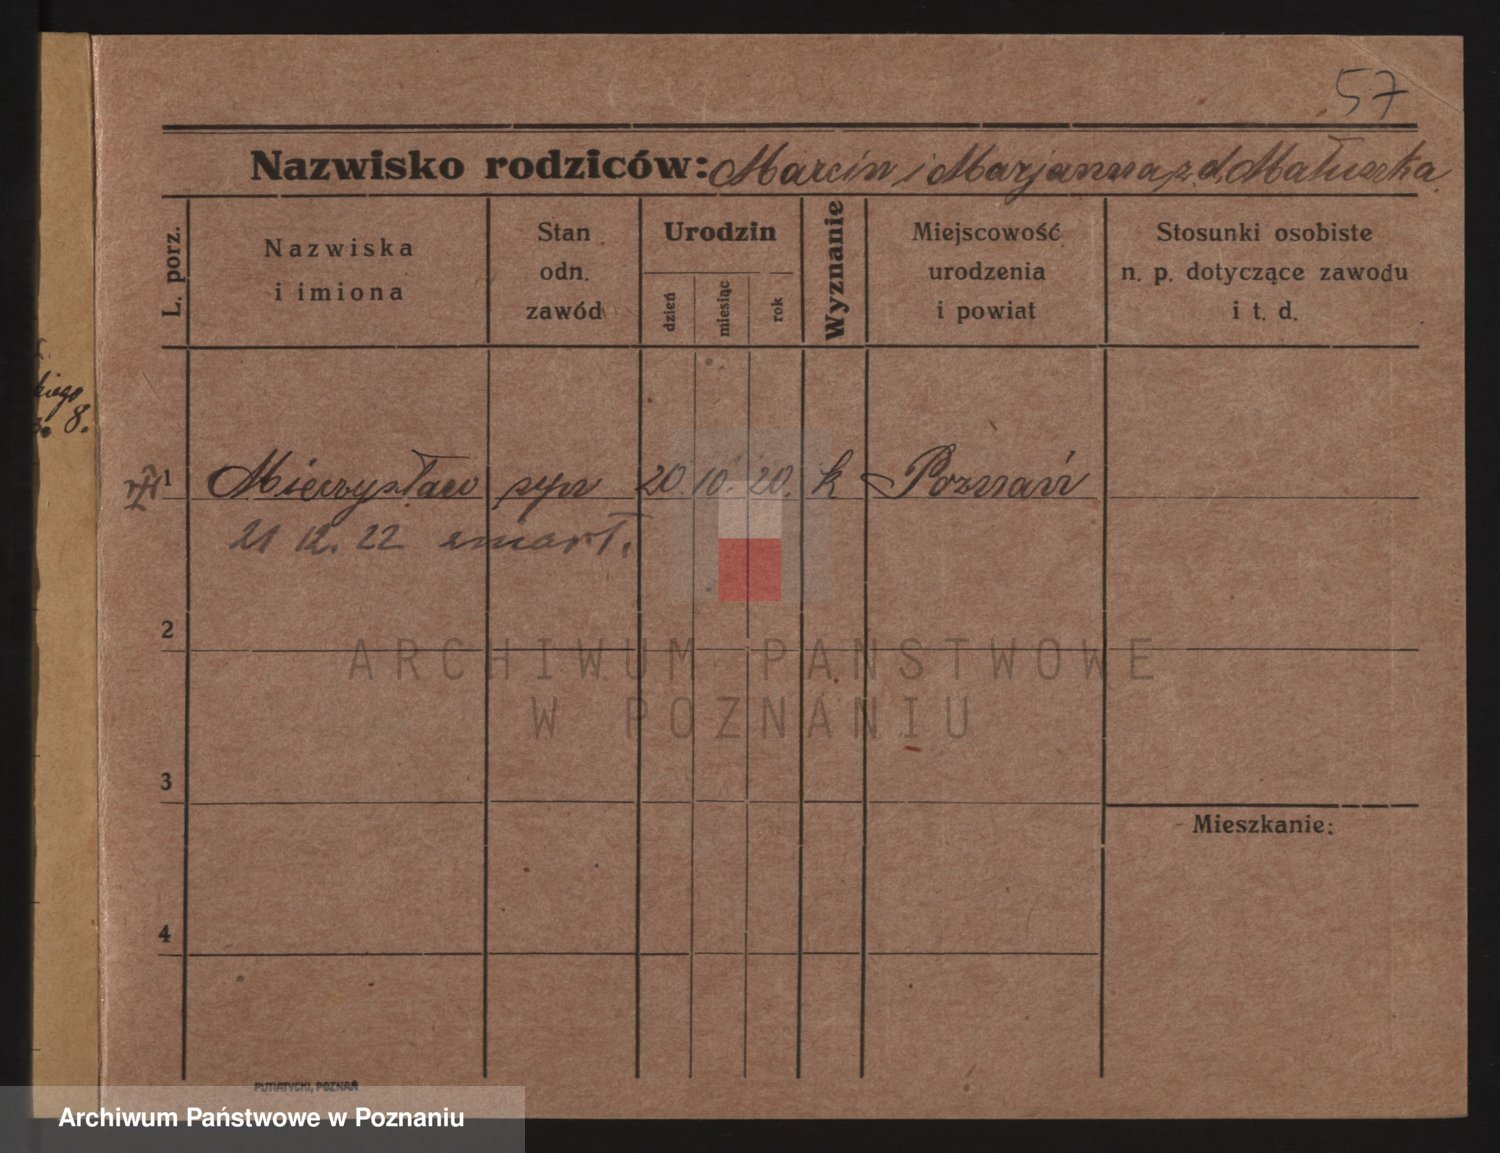 57
Nazwisko rodziców: Marcin i Marjanna z d. Małuszka
L. porz.
Nazwiska i imiona
Stan odn. zawód
Urodzin
dzień
miesiąc
rok
Wyznanie
Miejscowość urodzenia i powiat
Stosunki osobiste n. p. dotyczące zawodu i t. d.
kiego
8.
1 Mieczysław syn 20. 10. 20. k Poznań
21 12. 22 zmarł.
2
ARCHIWUM PAŃSTWOWE
W POZNANIU
3
Mieszkanie:
4
PUTIATYCKI, POZNAŃ
Archiwum Państwowe w Poznaniu